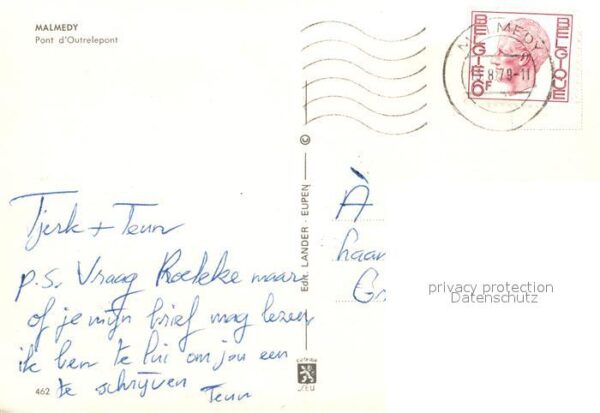 MALMEDY
Pont d'Outrelepont
MALMEDY
8 79-11
BELGIË
BELGIQUE
6F
©
Edit. LANDER - EUPEN
À
haar
Tjerk + Teun
p.s. Vraag Roeleke maar
of je mijn brief mag lezen
ik ben te lui om jou een
te schrijven Teun
462
privacy protection
Datenschutz